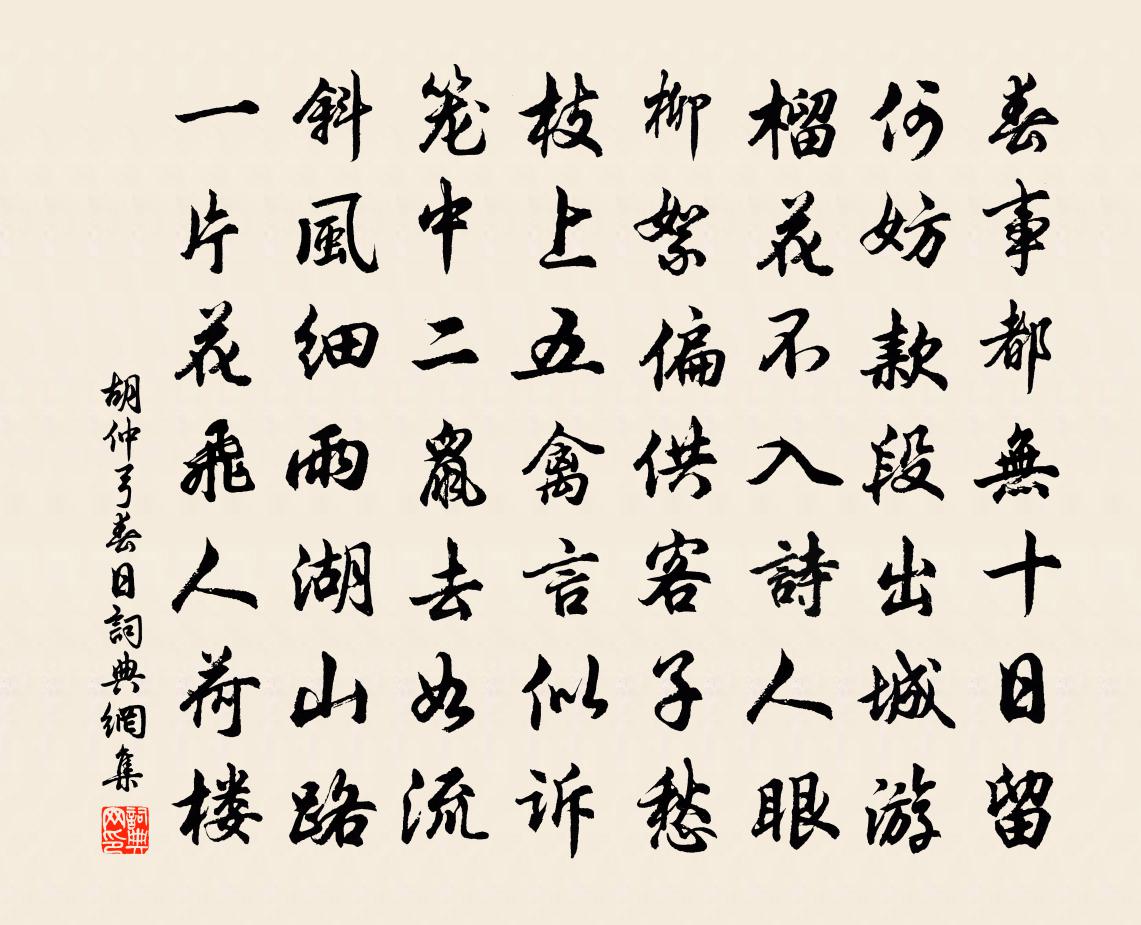 春事都無十日留
何妨款段出城游
榴花不入詩人眼
柳絮偏供客子愁
枝上五禽言似訴
笼中二鼠去如流
斜風细雨湖山路
一片花飛人荷楼
胡仲弓春日詞典網集
詞典网印